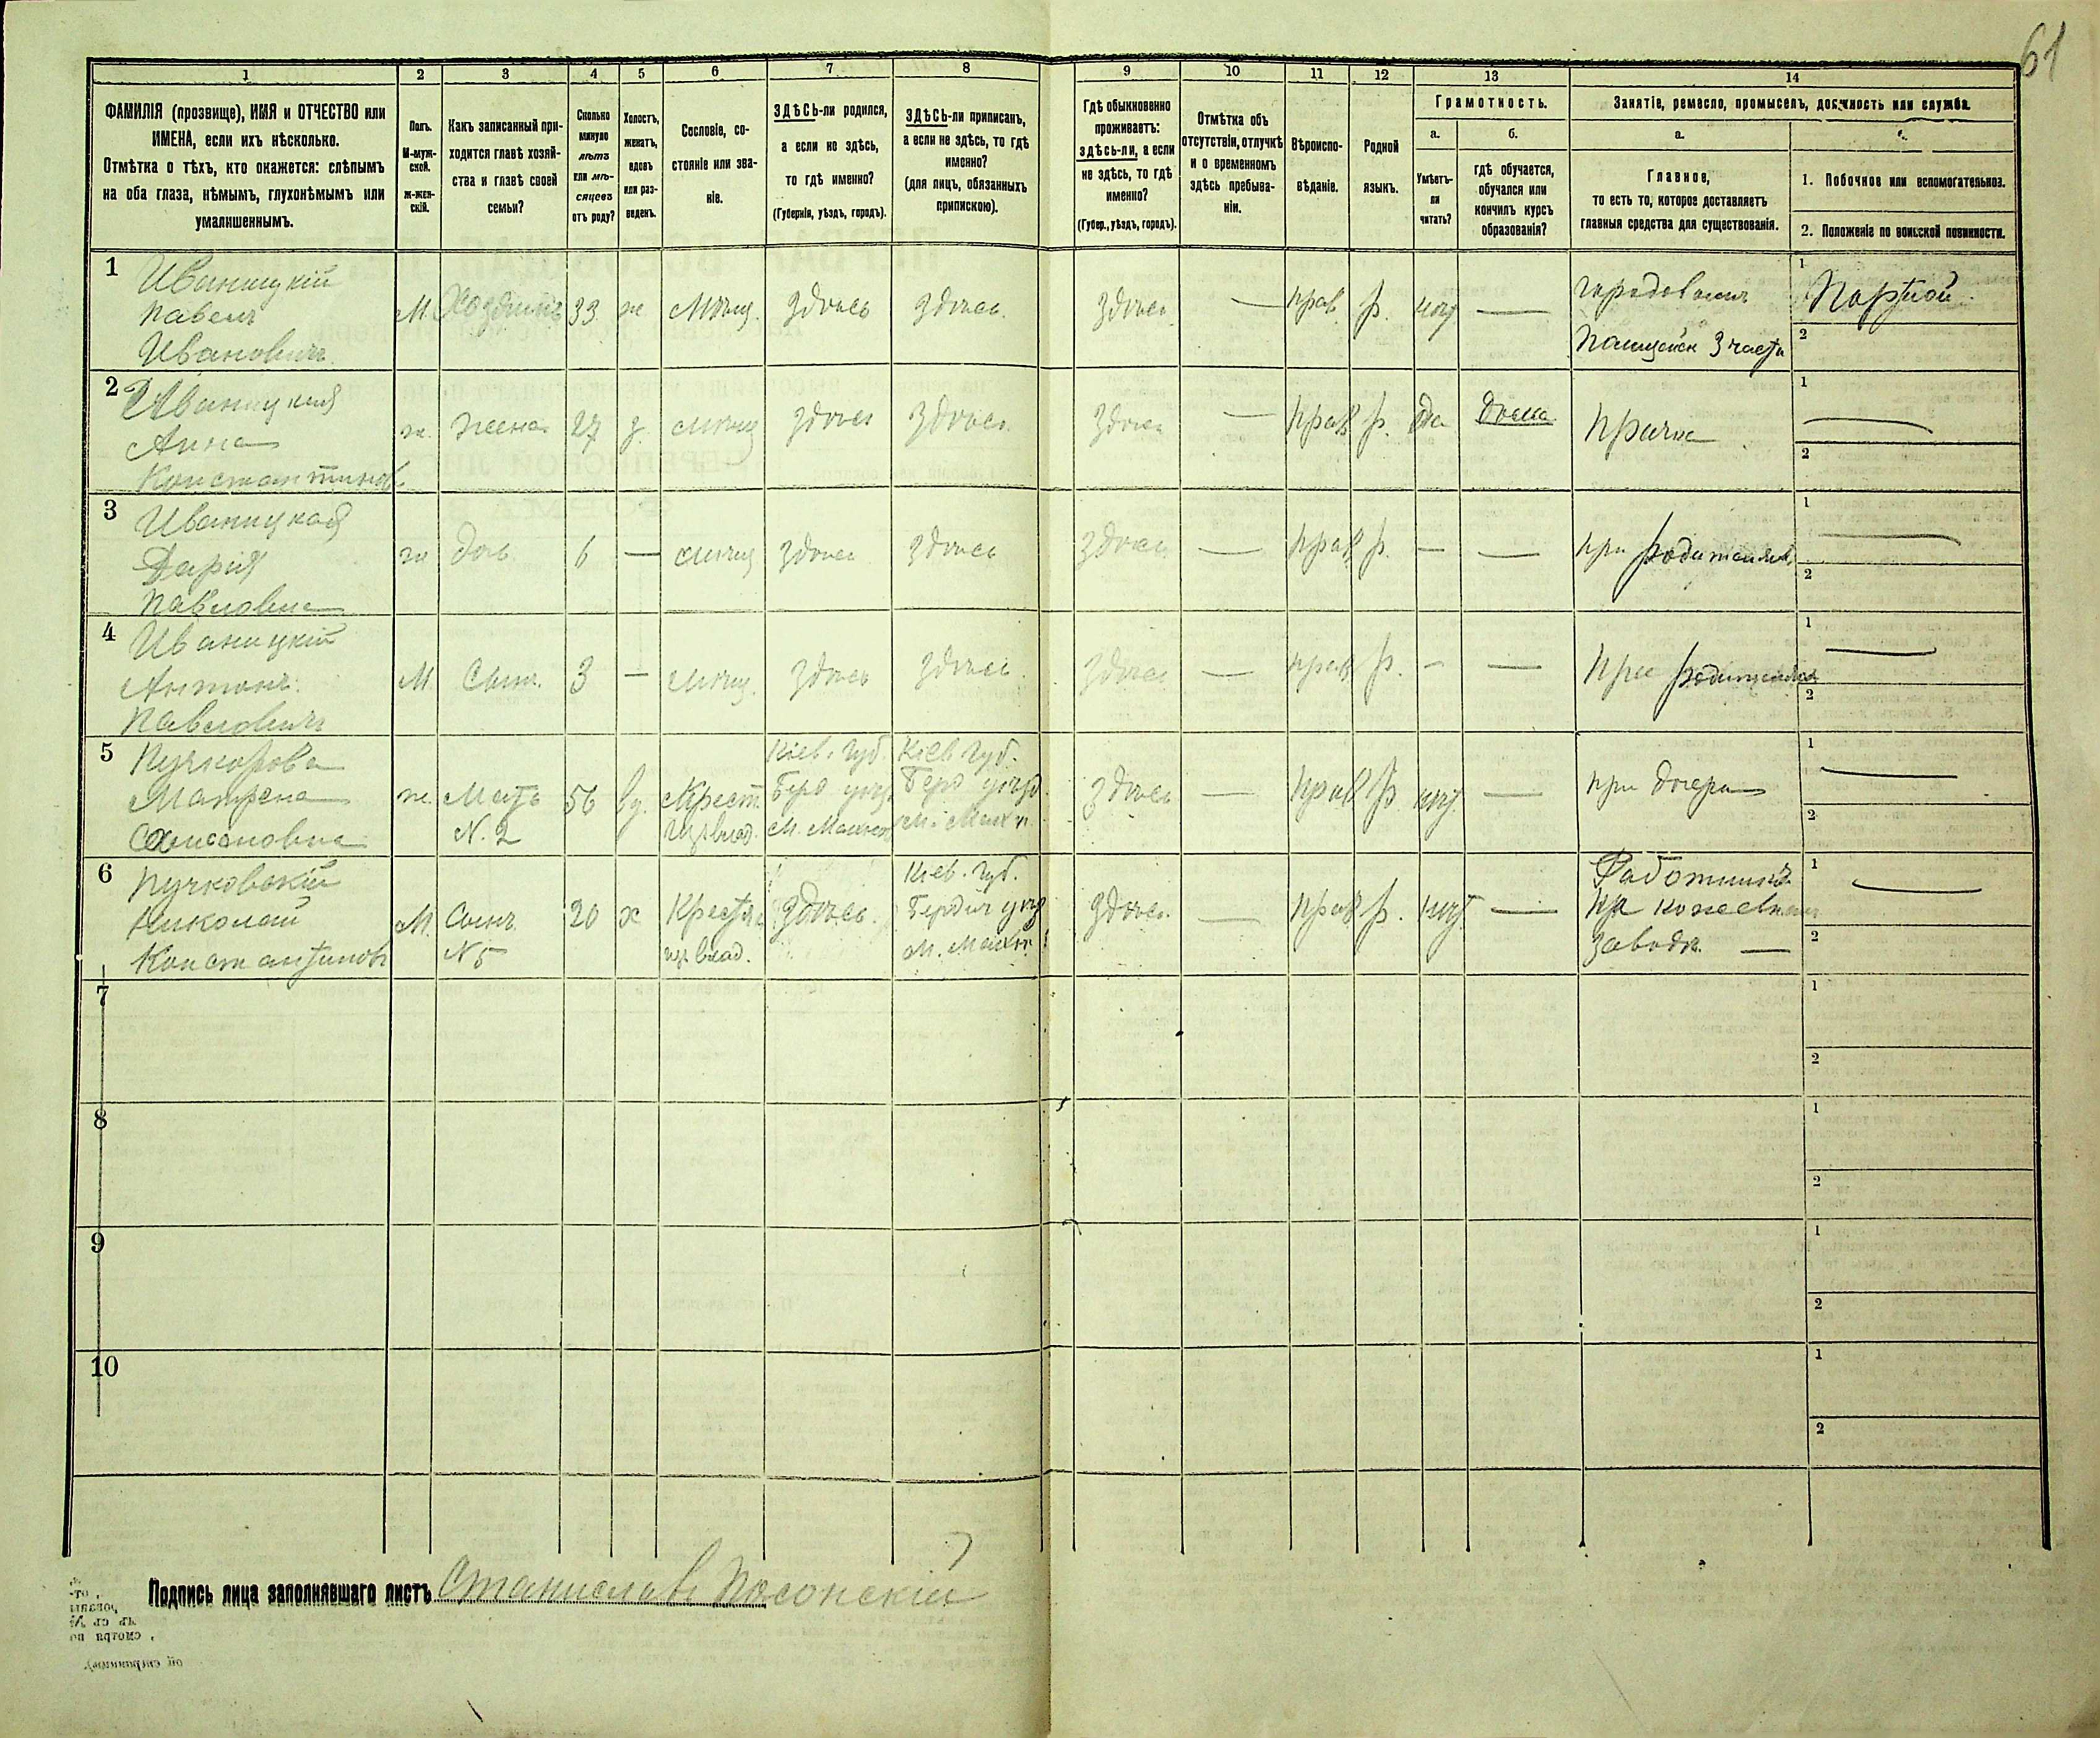 61
1 2 3 4 5 6 7 8 9 10 11 12 13 14
ФАМИЛІЯ (прозвище), ИМЯ и ОТЧЕСТВО или
ИМЕНА, если ихъ нѣсколько.
Отмѣтка о тѣхъ, кто окажется: слѣпымъ
на оба глаза, нѣмымъ, глухонѣмымъ или
умалишеннымъ.
Полъ.
М-муж-
ской.
ж-жен-
скій.
Какъ записанный при-
ходится главѣ хозяй-
ства и главѣ своей
семьи?
Сколько
минуло
лѣтъ
или мѣ-
сяцевъ
отъ роду?
Холостъ,
женатъ,
вдовъ
или раз-
веденъ.
Сословіе, со-
стояніе или зва-
ніе.
ЗДѢСЬ-ли родился,
а если не здѣсь,
то гдѣ именно?
(Губернія, уѣздъ, городъ).
ЗДѢСЬ-ли приписанъ,
а если не здѣсь, то гдѣ
именно?
(для лицъ, обязанныхъ
припискою).
Гдѣ обыкновенно
проживаетъ:
здѣсь-ли, а если
не здѣсь, то гдѣ
именно?
(Губер., уѣздъ, городъ).
Отмѣтка объ
отсутствіи, отлучкѣ
и о временномъ
здѣсь пребыва-
ніи.
Вѣроиспо-
вѣданіе.
Родной
языкъ.
Грамотность.
а.
Умѣетъ-
ли
читать?
б.
гдѣ обучается,
обучался или
кончилъ курсъ
образованія?
Занятіе, ремесло, промыселъ, должность или служба.
а.
Главное,
то есть то, которое доставляетъ
главныя средства для существованія.
1. Побочное или вспомогательное.
2. Положеніе по воинской повинности.
1 Иваницкій
Павелъ
Ивановичъ
М. Хозяинъ 33 ж Мѣщ. здѣсь здѣсь. здѣсь — прав. р. нѣт —
городовым
Полицейск 3 части
1 Портной
2
2 Иваницкая
Анна
Константинов
ж. жена 27 з. мѣщ здѣсь здѣсь. здѣсь — прав р. да Дома прачка
1 —
2
3 Иваницкая
Дарія
Павловна
ж дочь 6 — мѣщ здѣсь здѣсь здѣсь — прав р. — — при родителях
1 —
2
4 Иваницкій
Антонъ
Павловичъ
М Сынъ. 3 — мѣщ. здѣсь здѣсь. здѣсь — прав р. — — при родителях
1 —
2
5
Матрена
ж. Мать
N. 2
56 вд. Крест.
из влад.
Кіев. Губ.
Берд уѣзд
Кіев Губ.
Берд уѣзд.
здѣсь — прав р. нѣт. — при дочери
1 —
2
6 Пучковскій
Николай
Константинов
М. Сынъ
N 5
20 х Крестян
из влад.
здѣсь.
Кіев. Губ.
Бердич уѣзд
здѣсь. — прав р. нѣт —
Работникъ
на кожевном
заводѣ. —
1 —
2
7 1
2
8 1
2
9 1
2
10 1
2
Подпись лица заполнявшаго листъ Станиславъ